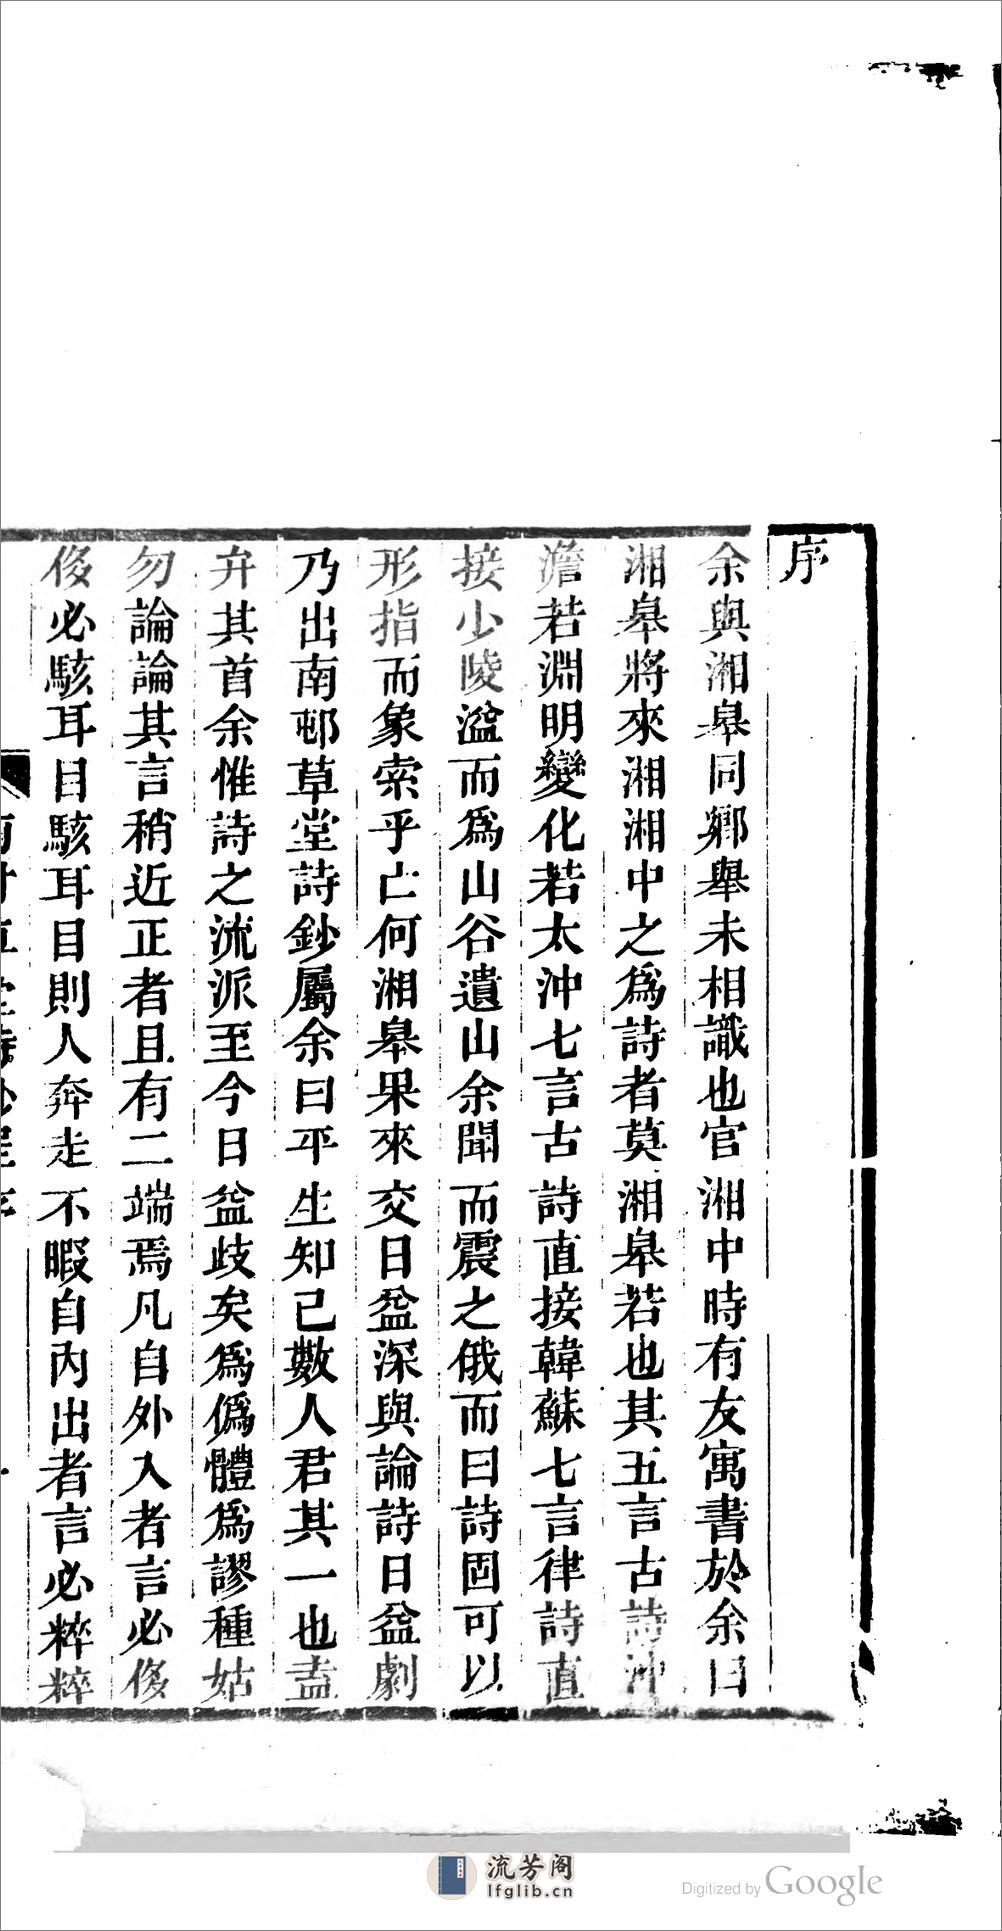 序
余與湘皋同鄉舉未相識也官湘中時有友寓書於余曰
湘皋將來湘湘中之爲詩者莫湘皋若也其五言古詩沖
澹若淵明變化若太沖七言古詩直接韓蘇七言律詩直
接少陵溢而爲山谷遺山余聞而震之俄而曰詩固可以
形指而象索乎亡何湘皋果來交日益深與論詩日益劇
乃出南邨草堂詩鈔屬余曰平生知己數人君其一也盍
弁其首余惟詩之流派至今日益歧矣爲僞體爲謬種姑
勿論論其言稍近正者且有二端焉凡自外入者言必侈
侈必駭耳目駭耳目則人奔走不暇自內出者言必粹粹
流芳阁
lfglib.cn
Digitized by Google